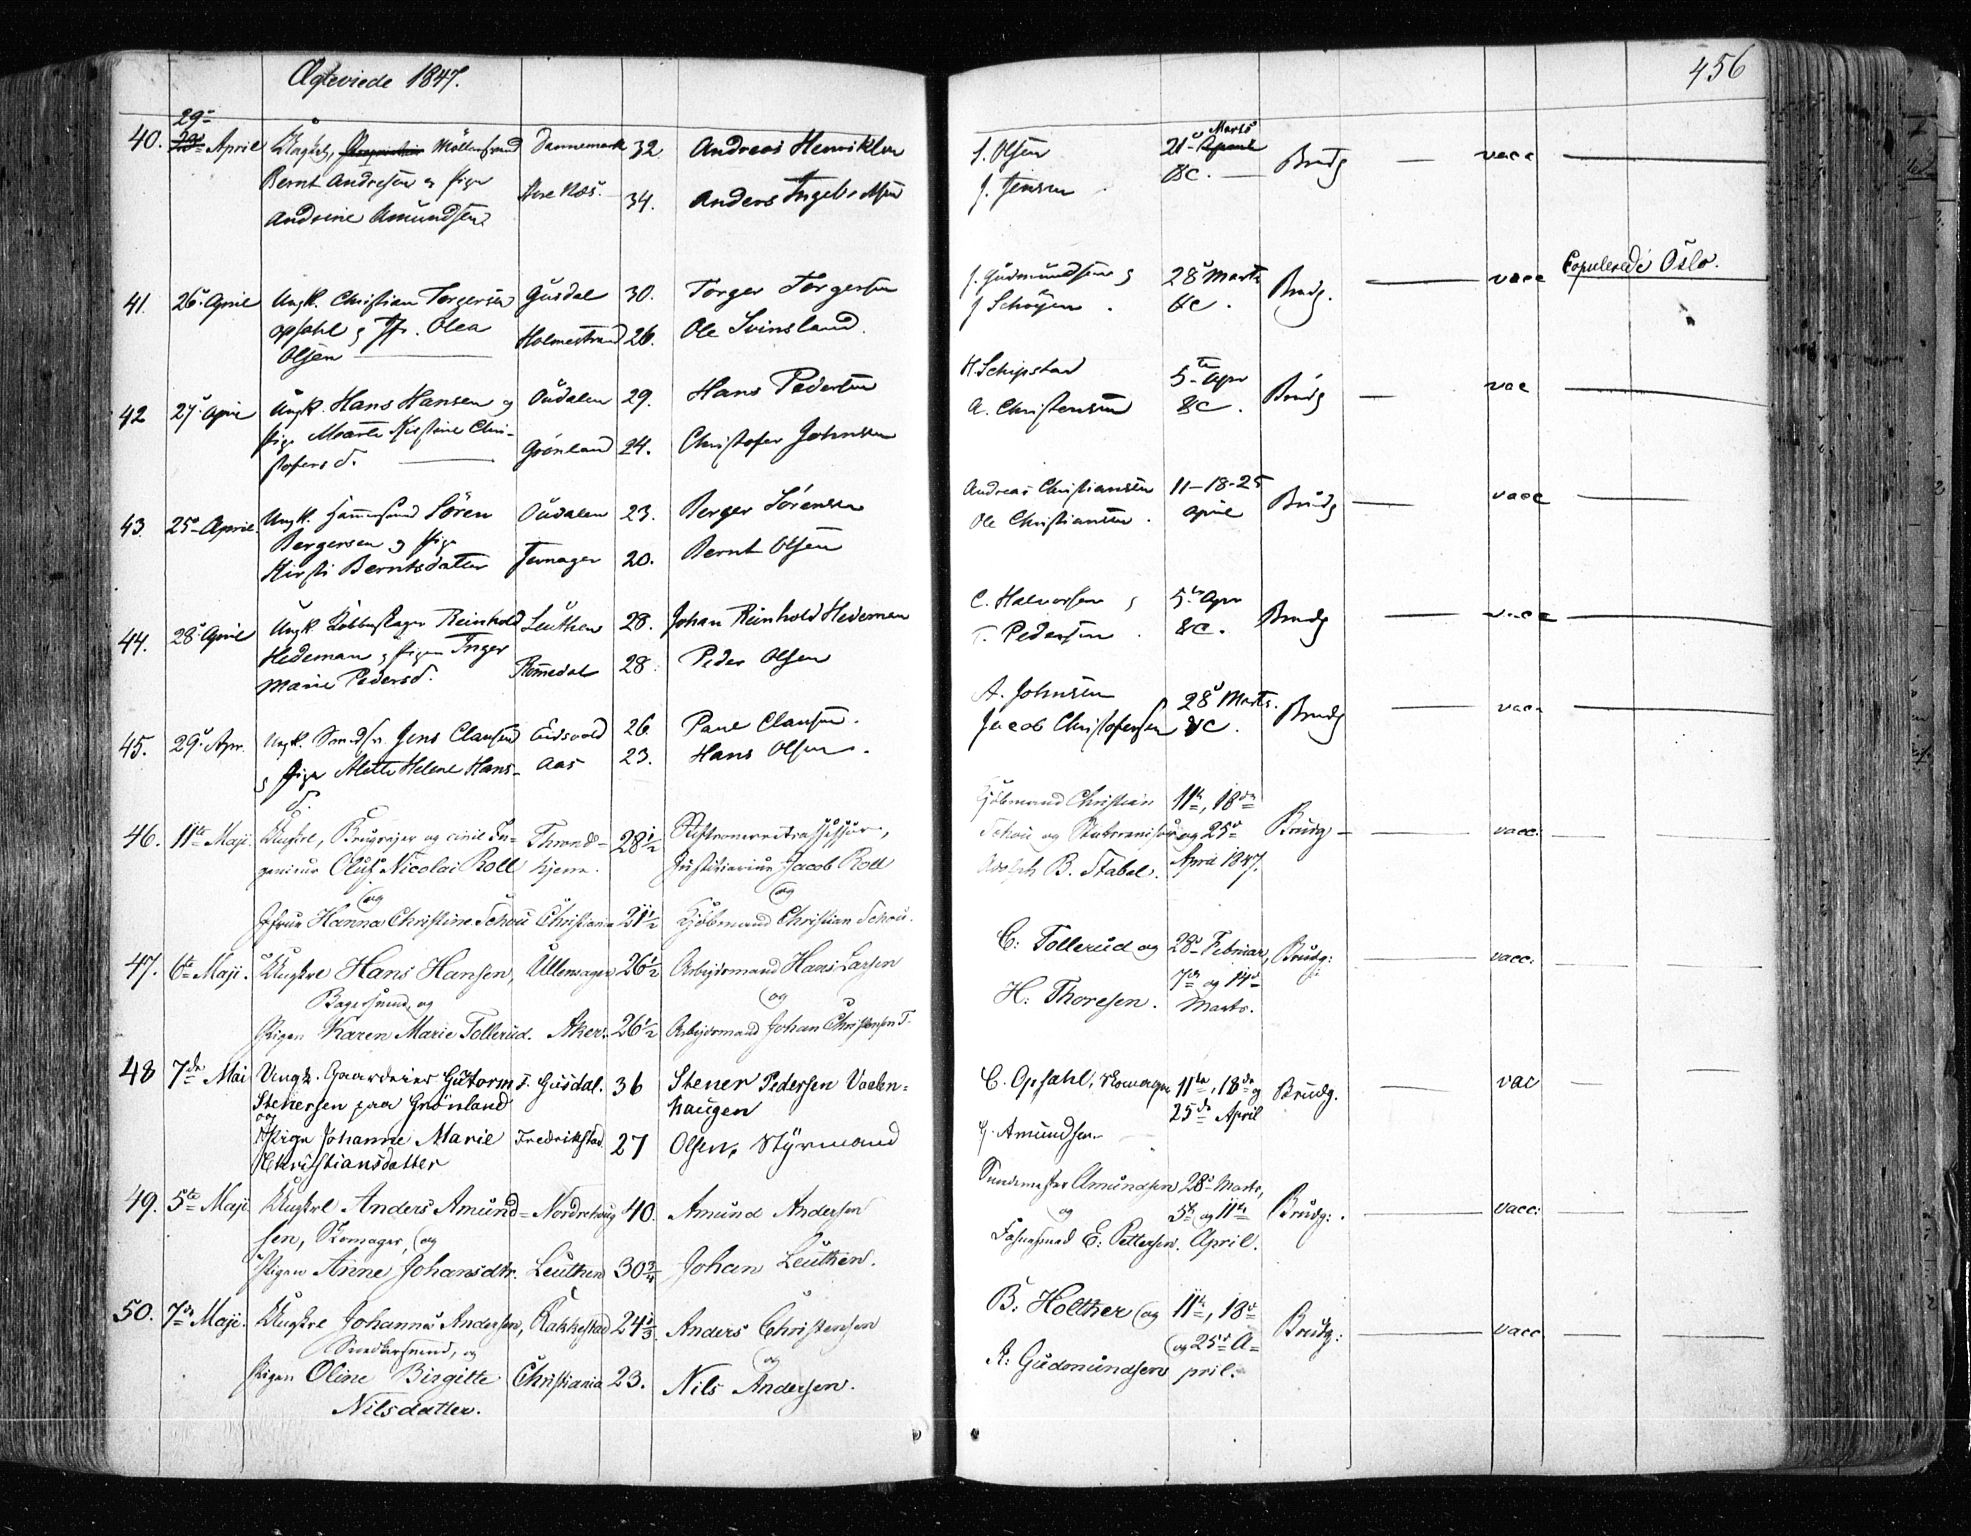 Ægteviede 1847.
456
29de
40. April Møllersvend Dannemark 32 Andreas Henriksen J. Olsen 21de Marts Brudg — vacc
Bernt Andresen og Pige 34. Anders Ingebretsen J. Jensen &c. —
Andrine Amundsen
41. 26de April Ungk. Christian Torgersen Gusdal 30. Torger Torgersen J. Gudmundsen og 28de Marts Brudg. — vacc Copulerede Oslo.
Opsahl og Jfr. Olea Holmestrand 26. Ole Svinsland. J Schøyen . &c.
Olsen —
42 27de April Ungk. Hans Hansen og Oudalen 29. Hans Pedersen H. Schipstad 5te Apr Brudg — vac
Pige Marte Kirstine Chri- Grønland 24. Christofer Johnsen A. Christensen &c.
stofersd. —
43. 25de April. Ungk. Søren Oudalen 23. Berger Sørensen Andreas Christiansen 11-18-25 Brudg — vacc
Bergersen og Pige 20. Bernt Olsen Ole Christiansen . April
Kirsti Berntsdatter
44. 28de April Ungk Kobberslager Reinhold Leuthen 28. Johan Reinhold Hedeman C. Halvorsen og 5te Apr Brudg — vacc
Hedeman og Pigen Inger Romedal 28. Peder Olsen T. Pedersen . &c.
Marie Pedersd.
45. 29de Apr. Ungk. Jens Clausen Eidsvold 26 Paul Clausen. A. Johnsen 28de Marts. Brudg — vacc
og Pige Mette Helene Hans- Aas 23. Hans Olsen. Jacob Christofersen &c.
d.
46. 11te Maji. Ungkrl, Brugseier og civil In- Thrond- 28½ Stiftsoverretsassessor, Kjøbmand Christian 11te, 18de Brudg — vacc.
genieur Oluf Nicolai Roll hjem. Justitiarius Jacob Roll Schou og og 25de
(og (og Adolph B. Stabel. April 1847.
Jfrue Hanna Christine Schou Christiania 21½ Kjøbmand Christian Schou.
47. 6te Maji. Ungkrl Hans Hansen, Ullensager 26½ Arbeidsmand Hans Larsen C: Tollerud og 28de Februar, Brudg: vacc:
Bagersvend og (og H: Thoresen. 7de og 14de
Pigen Karen Marie Tollerud. Aker. 26½ Arbeidsmand Johan Christensen T. Marts.
48 7de Mai Ungk. Gaardeier Gutorm J. Gusdal. 36 Stener Pedersen Vaalen- C. Opsahl, Skomager 11te, 18de og Brudg. — vac
Stenersen paa Grønland haugen 25de April
og
Pige Johanne Marie Fredrikstad 27 Olsen, Styrmand Amundsen
Christiansdatter
49. 5te Maji Ungkrl Anders Amund- Nordrehoug 40. Amund Andersen Amundsen 28de Marts, Brudg: . — vacc:
sen, Skomager, (og og 5te og 11te
Pigen Anne Johansdtr. Leuthen 30¾ Johan Leuthen. E: Pettersen. April.
50. 7de Maji. Ungkrl Johannes Andersen, Rakkestad 24⅓ Anders Christensen B: Holther (og 11te, 18de Brudg: — vacc
Snedkersvend, og (og (og 25de A-
Pigen Oline Birgitte Christiania 23. Nils Andersen. A: Gudmundsen pril.
Nilsdatter.